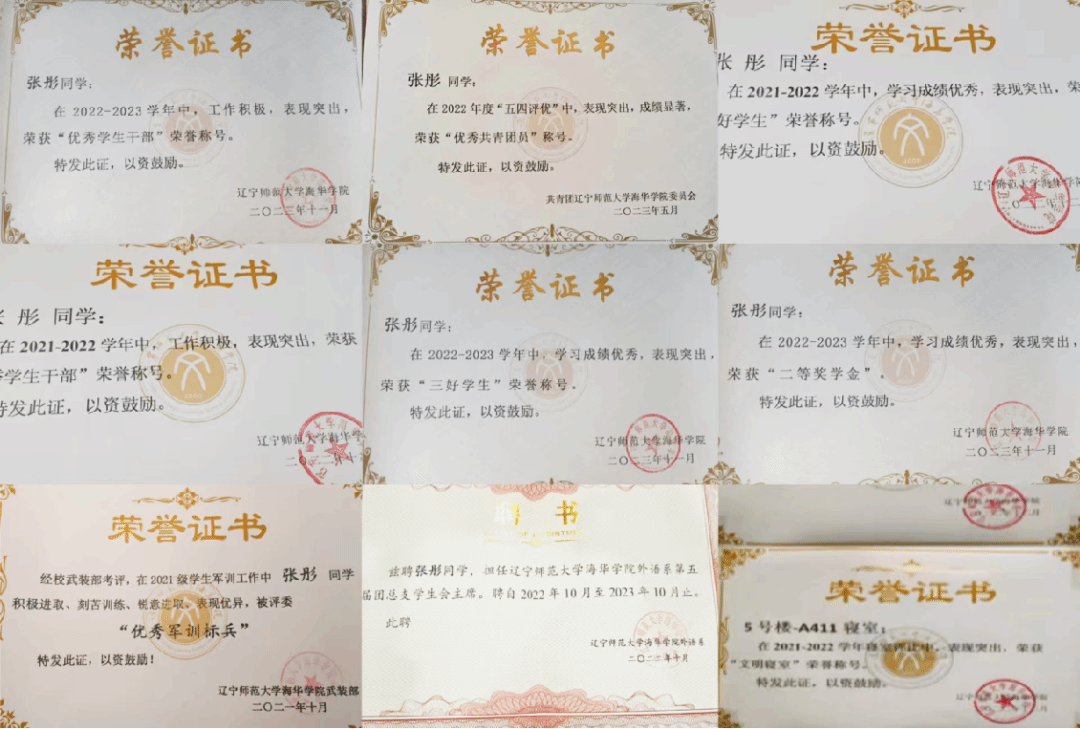 荣誉证书
张彤同学:
在 2022-2023 学年中, 工作积极, 表现突出,
荣获“优秀学生干部”荣誉称号。
特发此证, 以资鼓励。
辽宁师范大学海华学院
二〇二三年十一月
荣誉证书
张彤 同学:
在 2022 年度“五四评优”中, 表现突出, 成绩显著,
荣获“优秀共青团员”称号。
特发此证, 以资鼓励。
共青团辽宁师范大学海华学院委员会
二〇二三年五月
荣誉证书
张 彤 同学:
在 2021-2022 学年中, 学习成绩优秀, 表现突出, 荣
好学生”荣誉称号。
特发此证, 以资鼓励。
辽宁师范大学海华学
荣誉证书
彤 同学:
在 2021-2022 学年中, 工作积极, 表现突出, 荣获
学生干部”荣誉称号。
特发此证, 以资鼓励。
辽宁师范大学海华学
荣誉证书
张彤同学:
在 2022-2023 学年中, 学习成绩优秀, 表现突出,
荣获“三好学生”荣誉称号。
特发此证, 以资鼓励。
辽宁师范大学海华学院
二〇二三年十一月
荣誉证书
张彤同学:
在 2022-2023 学年中, 学习成绩优秀, 表现突出,
荣获“二等奖学金”。
特发此证, 以资鼓励。
辽宁师范大学海华学院
二〇二三年十一月
荣誉证书
经校武装部考评, 在 2021 级学生军训工作中 张彤 同学
积极进取、刻苦训练、锐意进取、表现优异, 被评委
“优秀军训标兵”
特发此证, 以资鼓励!
辽宁师范大学海华学院武装部
二〇二一年十月
聘 书
兹聘张彤同学, 担任辽宁师范大学海华学院外语系第五
届团总支学生会主席。聘自 2022 年 10 月至 2023 年 10 月止。
此聘
辽宁师范大学海华学院外语系
二〇二二年十月
荣誉证书
5 号楼-A411 寝室:
在 2021-2022 学年寝室评比中, 表现突出, 荣获
“文明寝室”荣誉称号。
特发此证, 以资鼓励。